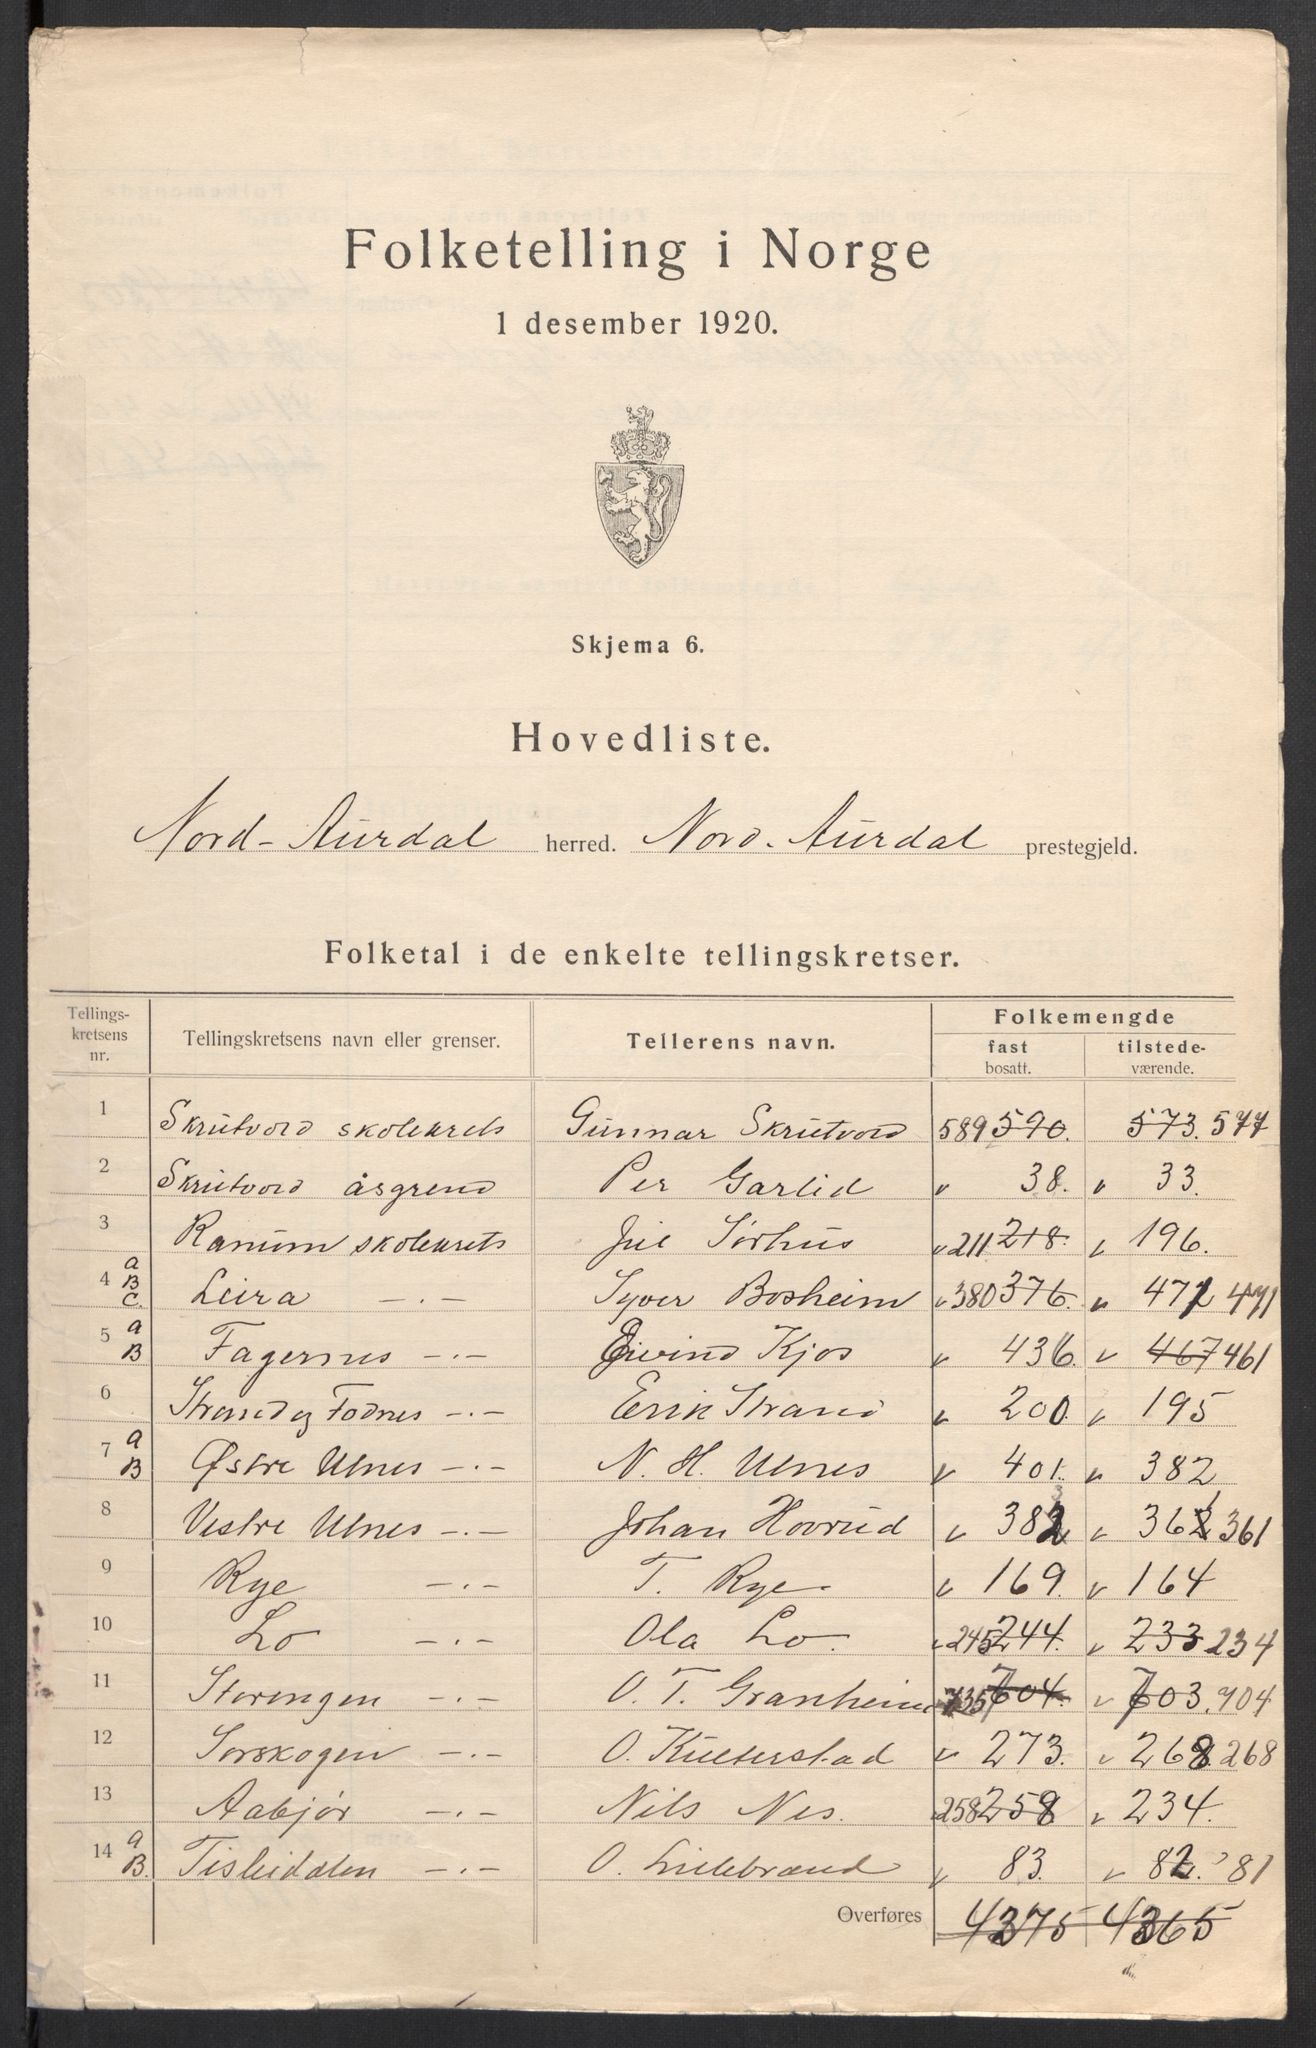 Folketelling i Norge
1 desember 1920.
Skjema 6.
Hovedliste.
Nord-Aurdal herred. Nord-Aurdal prestegjeld.
Folketal i de enkelte tellingskretser.
Tellings-kretsens nr. Tellingskretsens navn eller grenser. Tellerens navn. Folkemengde
fast bosatt. tilstede-værende.
1 Skrutvord skolekrets Gunnar Skrutvord 589 590. 573. 577
2 Skrutvord åsgrend Per Garlid " 38. " 33.
3 Ranum skolekrets Juel Sørhus " 211 218. " 196.
4 a B C. Leira -.- Syver Bosheim " 380 376. " 472 471
5 a B Fagernes -.- Eivind Kjos " 436. " 467 461
6 Strand og Fodnes -.- Erik Strand " 200. " 195
7 a B Østre Ulnes -.- N. H. Ulnes " 401. " 382
8 Vestre Ulnes -.- Johan Hovrud " 382 3 " 362 361
9 Rye -.- T. Rye " 169. " 164
10 Lo -.- Ola Lo. " 245 244. " 233 234
11 Storengen -.- O. T. Granheim 735 704. " 703. 704
12 Sørskogen -.- O. " 273. " 268. 268
13 Aabjør -.- Nils Nes. 258 258 " 234.
14 a B. Tisleidalen -.- O. Lillebrand " 83. " 82. 81
Overføres 4375 4365